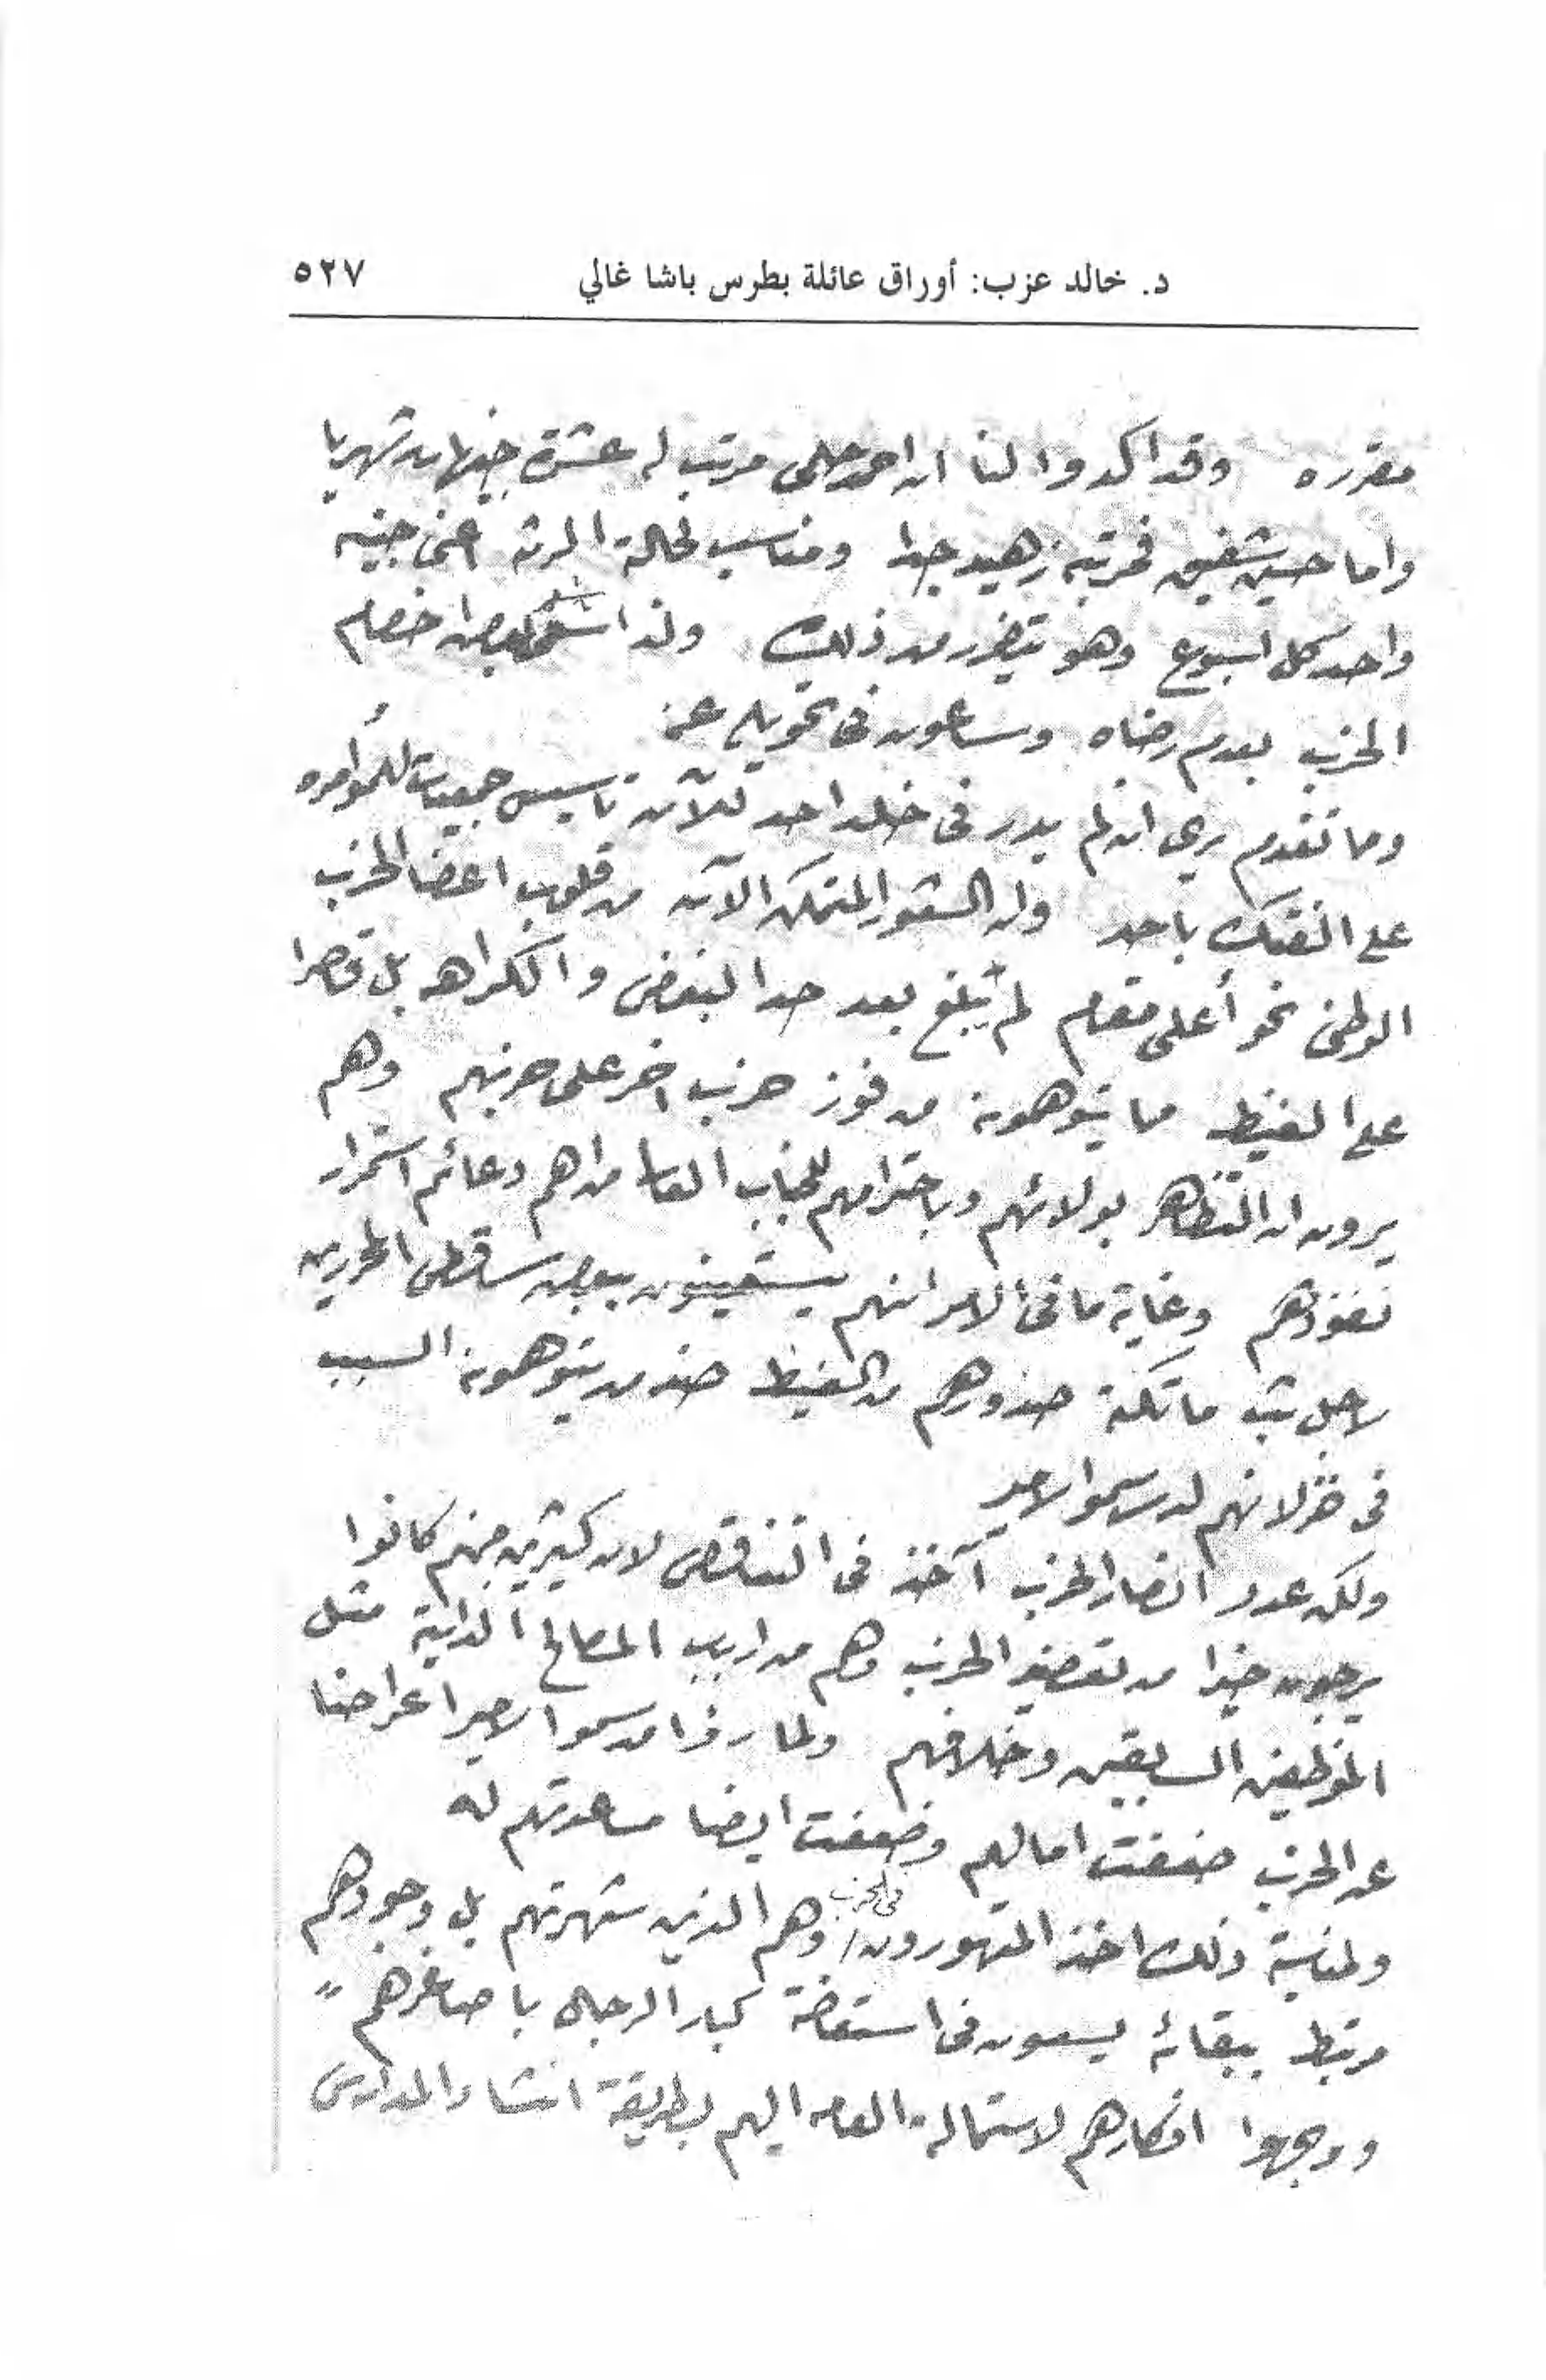 د. خالد عزب: أوراق عائلة بطرس باشا غالي ٥٢٧
مقرره وقد اكدوا لنا ان احمد حلمى مرتب له عشرة جنيهات شهريا
واما حسين شفيق فمرتبه زهيد جدا ومناسب لحالة المرتب اعنى جنيه
واحد كل اسبوع وهو يتضرر من ذلك ولذا بعض اخصام
الحزب بعدم رضاه وساعون فى تحويله عنه
ومما تقدم يرى انه لم يدر فى خلد احد للآن تاسيس جمعيات للمؤامره
على الفتك باحد وان الشعور المتمكن الآن من قلوب اعضا الحزب
الوطنى نحو أعلى مقام لم يبلغ بعد حد البغض والكراهه بل قاصرا
على الغيظ مما يتوهمونه من فوز حزب اخر على حزبهم وهم
يرون ان التظاهر بولائهم وباحترامهم للجناب العالى من اهم دعائم استمرار
نفوذهم وغاية ما فى الامر انهم يستعينون ببعض ساقطى المحررين
لاجل بث ما تكنه صدورهم من الغيظ ضد من يتوهمونه السبب
فى خذلانهم لدى سمو الامير
ولكن عدد انصار الحزب آخذ فى التناقص لان كثيرين منهم كانوا
يرجون خيرا من تعضيد الحزب وهم من ارباب المصالح الذاتية مثل
الموظفين السابقين وخلافهم ولما رأوا من سمو الامير اعراضا
عن الحزب ضعفت امالهم وضعفت ايضا مساعدتهم له
ولمناسبة ذلك اخذ المتهورون فى الحزب وهم الذين شهرتهم بل وجودهم
مرتبط ببقائه يسعون فى استعاضة كبار الرجال باصاغرهم
ووجهوا افكارهم لاستمالة العامه اليهم بطريقة انتشار المدارس